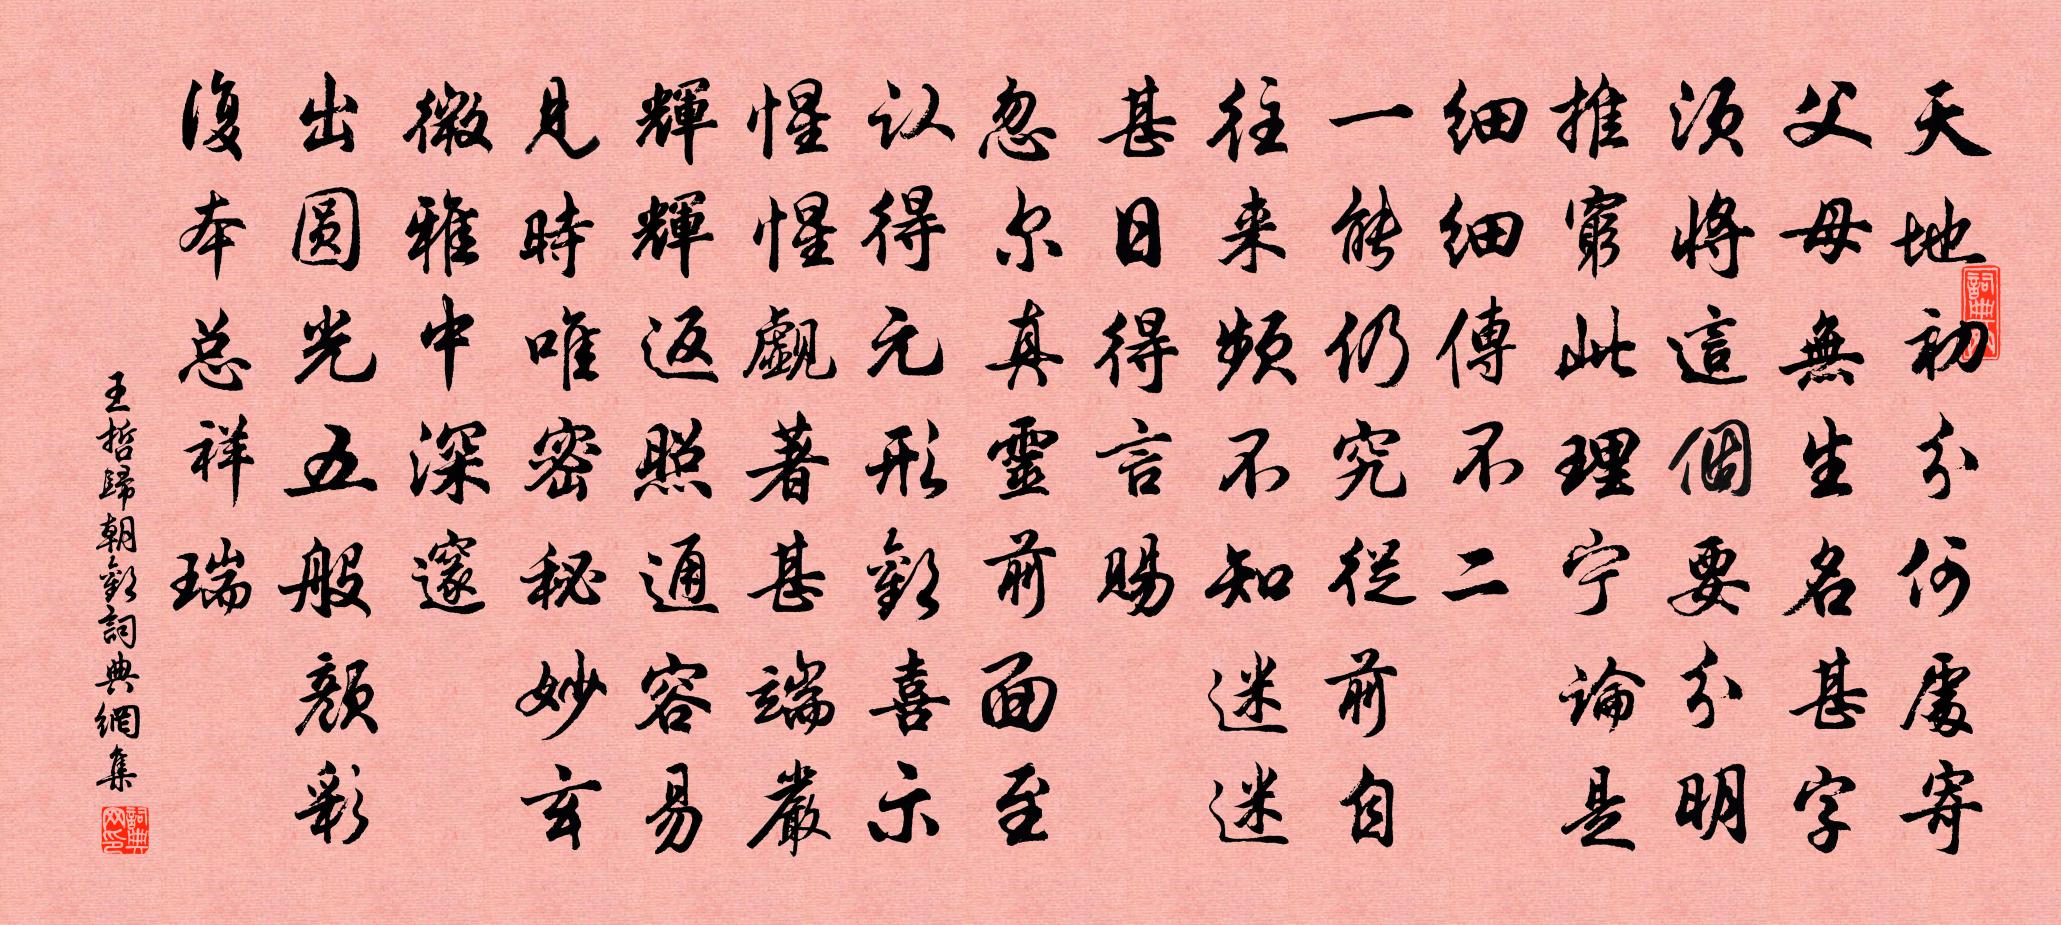 天地初分何處寄
父母無生名甚字
須將這個要分明
推窮此理宁論是
细细傳不二
一能仍究從前自
往来頻不知迷迷
甚日得言賜
忽尔真靈前面至
认得元形歡喜示
惺惺覷著甚端嚴
輝輝返照通容易
見時唯密秘妙玄
微雅中深邃
出圆光五般顏彩
復本总祥瑞
王哲歸朝歡詞典網集
詞典网
詞典网印